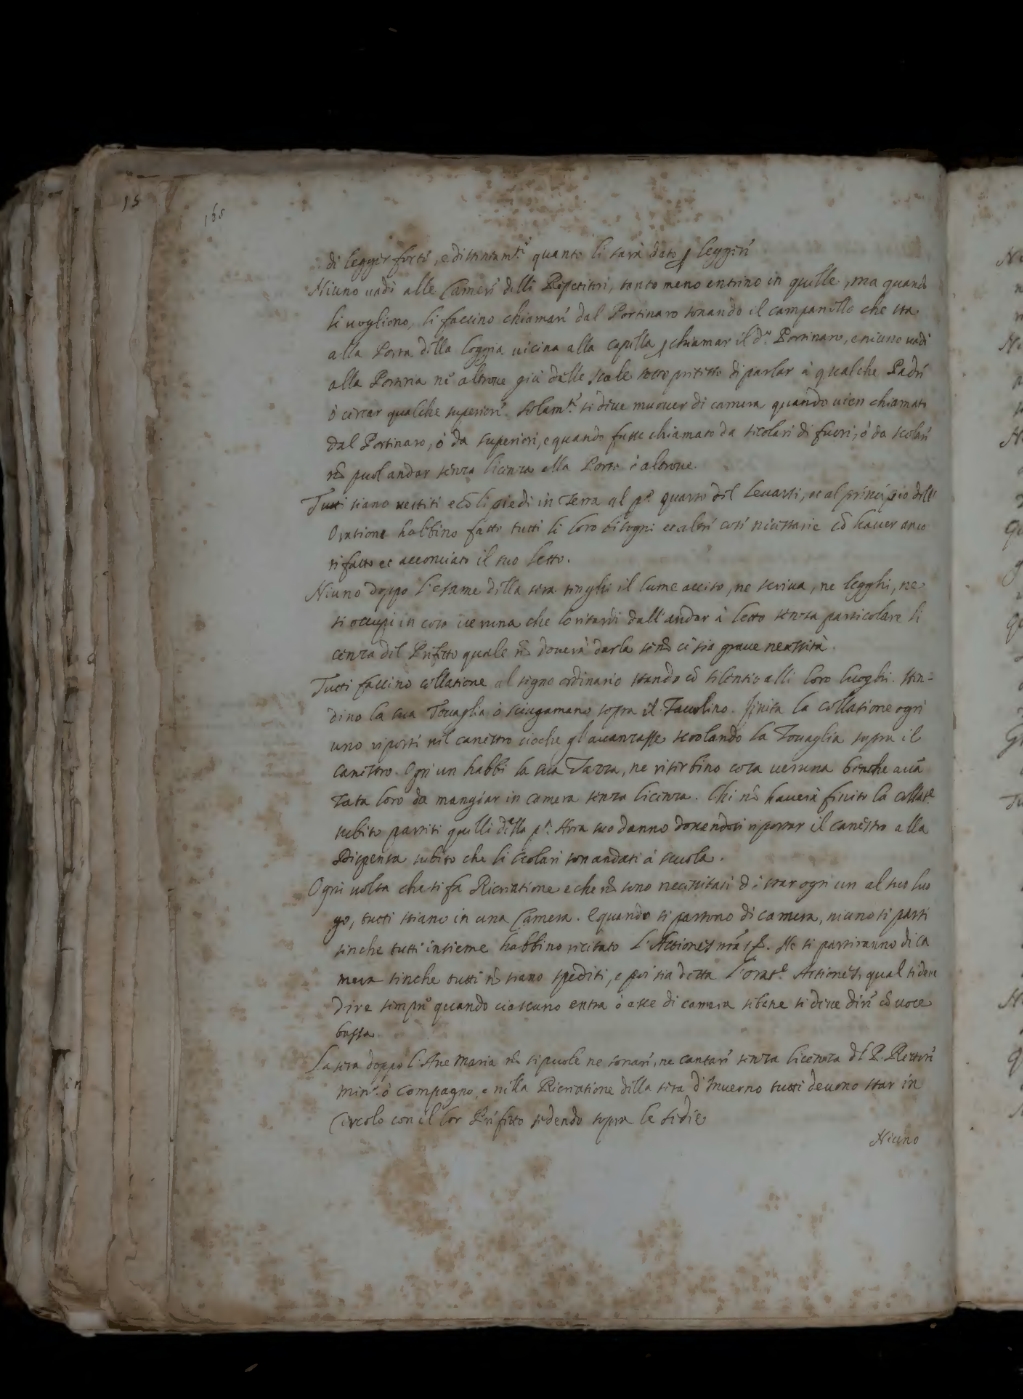 15
168
di leggier forte, e distintam.te quanto li sarà dato p leggere
Niuno vadi alle Camere delli Repetitori, tanto meno entrino in quelle, ma quando
li vogliono, li faccino chiamare dal Portinaro sonando il campanello che sta
alla Porta della loggia vicina alla capella p chiamar il d.o Portinaro, e niuno vadi
alla Portaria ne altrove giù delle scale sotto pretesto di parlar à qualche Padre
ò cercar qualche superiore. Solam.te si deve muover di camera quando vien chiamato
dal Portinaro, ò da superiori, e quando fusse chiamato da secolari di fuori, ò da scolari
nõ puol andar senza licenza alla Porta ò altrove.
Tutti siano vestiti e cõ li piedi in Terra al p.o quarto del levarsi, et al principio dell'
Oratione habbino fatto tutti li loro bisogni et altre cose necessarie cõ haver anco
rifatto et acconciato il suo letto.
Niuno doppo l'esame della sera tenghi il lume acceso, ne scriva, ne legghi, ne
si occupi in cosa veruna che lo ritardi dall'andar à letto senza particolare li
cenza del Prefetto quale nõ doverà darla se nõ ci sia grave necessità.
Tutti faccino collatione al segno ordinario stando cõ silentio alli loro luoghi. Sten-
dino la sua Tovaglia ò sciugamano sopra il Tavolino. finita la collatione ogni
uno riporti nel canestro cioche gl'avanzasse scrolando la Tovaglia sopra il
canestro. Ogni un habbi la sua Tazza, ne riserbino cosa veruna benche avã
zata loro da mangiar in camera senza licenza. Chi nõ haverà finito la collat.e
subito partiti quelli della p.a sarà suo danno dovendosi riportar il canestro alla
Dispensa subito che li scolari son andati à scuola.
Ogni volta che si fa Ricreatione e che nõ sono necessitati di star ogni un al suo luo
go, tutti stiano in una Camera. E quando si partono di camera, niuno si parti
sinche tutti insieme habbino recitato l'Actiones nrãs &. Ne si partiranno di ca
mera sinche tutti nõ siano spediti, e poi sia detta l'orat.e Actiones, qual si deve
dire sempre quando ciascuno entra ò esce di camera se bene si deve dire cõ voce
bassa.
La sera doppo l'Ave Maria nõ si puole ne sonare, ne cantare senza licenza del P. Rettore
Min.ro ò Compagno, e nella Ricreatione della sera d'Inverno tutti devono star in
Circolo con il lor Prefetto sedendo sopra le sedie
Niuno